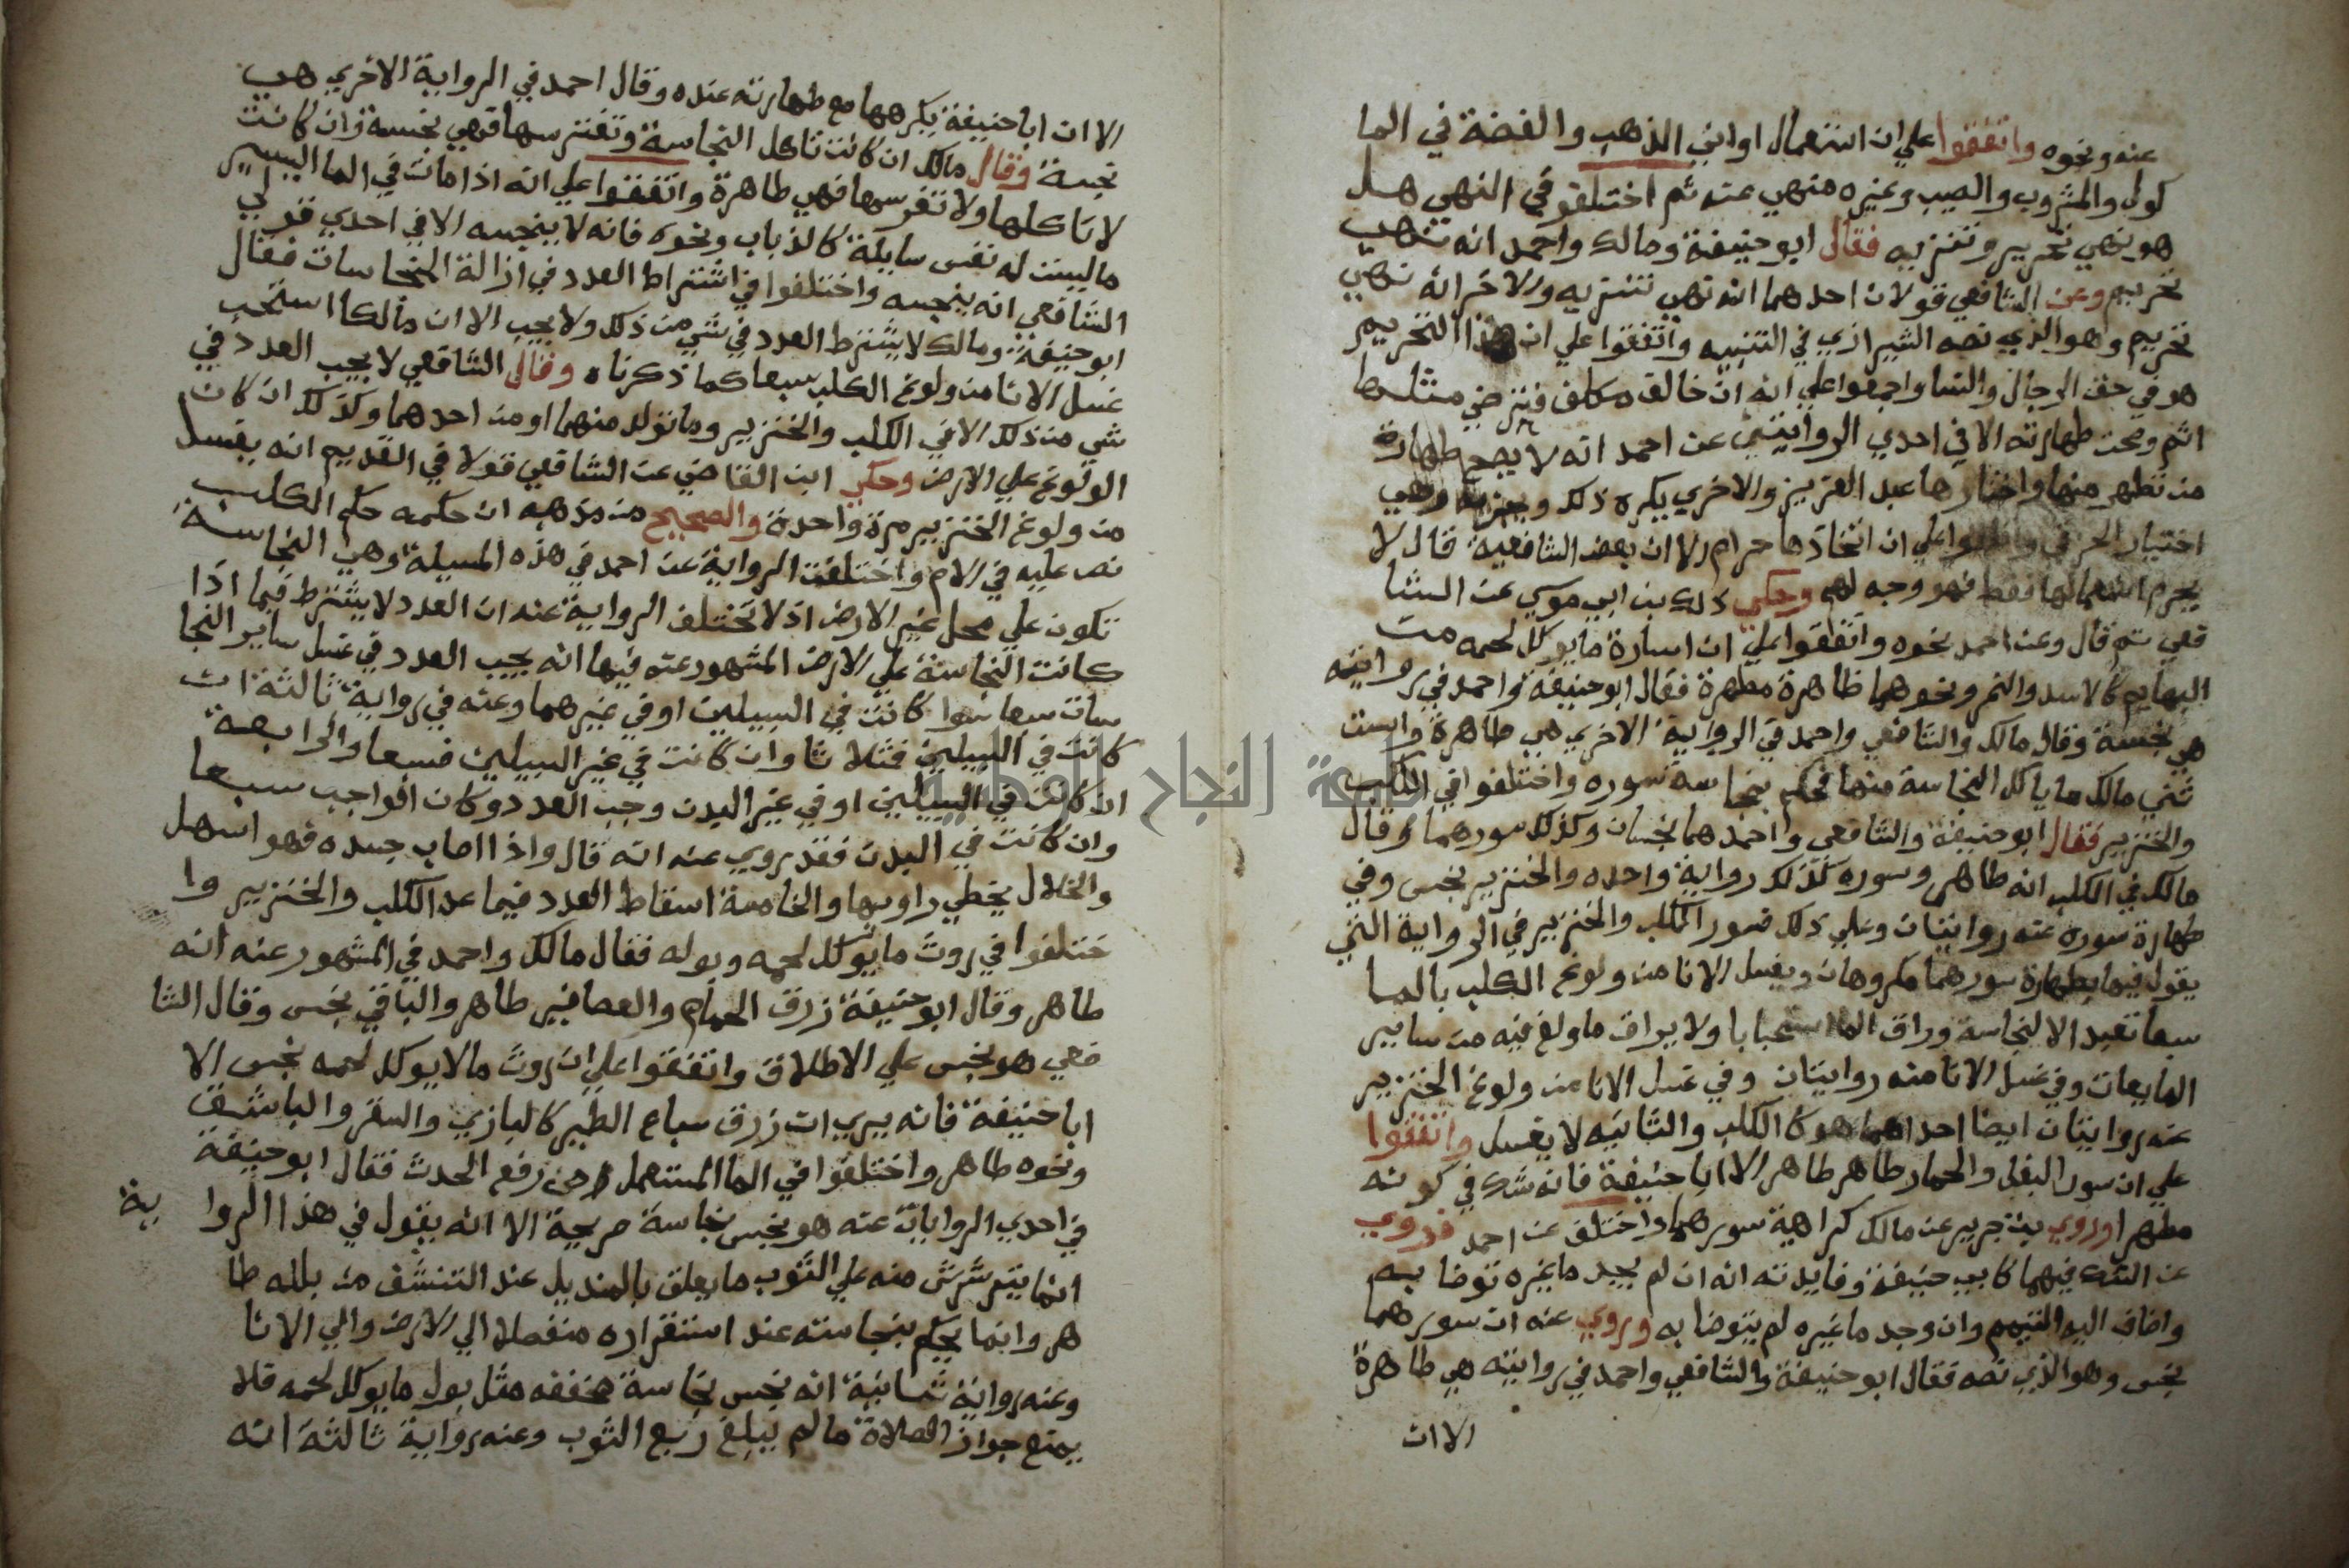 عنه ونحوه واتفقوا علي ان استعمال اواني الذهب والفضة في الما
كول والمشروب والطيب وغيره منهي عنه ثم اختلفوا في النهي هل
هو نهي تحريم وتنزيه فقال ابو حنيفة ومالك واحمد انه نهي
تحريم وعن الشافعي قولان احدهما انه نهي تنزيه والاخر انه نهي
تحريم وهو الذي نصه الشيرازي في التنبيه واتفقوا علي ان هذا التحريم
هو في حق الرجال والنسا واجمعوا علي انه ان خالف مكلف فتوضي مثلها
اثم وصحت طهارته الا في احدي الروايتين عن احمد انه لا يصح طهارة
من تطهر منها واختارها عبد العزيز والاخري يكره ذلك ويجزيه وهي
اختيار الخرقي واتفقوا علي ان اتخاذها حرام الا ان بعض الشافعية قال لا
يحرم استعمالها فقط فهو وجه لهم وحكي ذلك بن ابي موسي عن الشا
فعي ثم قال وعن احمد نحوه واتفقوا علي ان اسارة ما يوكل لحمه من
البهايم كالاسد والنمر ونحوهما طاهرة مطهرة فقال ابو حنيفة واحمد في روايته
هي نجسة وقال مالك والشافعي واحمد في الرواية الاخري هي طاهرة واست
ثني مالك ما ياكل النجاسة منها فحكم بنجاسة سوره واختلفوا في الكلب
والخنزير فقال ابو حنيفة والشافعي واحمد هما نجسان وكذلك سورهما وقال
مالك في الكلب انه طاهر وسوره كذلك رواية واحده والخنزير نجس وفي
طهارة سوره عنه روايتان وعلي ذلك فسور الكلب والخنزير في الرواية التي
يقول فيها بطهارة سورهما مكروهان ويغسل الانا من ولوغ الكلب بالما
سبعا تعبد الا لنجاسة وراق الما استحبابا ولا يراق ما ولغ فيه من ساير
المايعات وفي غسل الانا منه روايتان وفي غسل الانا من ولوغ الخنزير
عنه روايتان ايضا احداهما هو كالكلب والثانيه لا يغسل واتفقوا
علي ان سور البغل والحمار طاهر طاهر الا ابا حنيفة فانه شك في كونه
مطهرا وروي بن جرير عن مالك كراهية سورهما واختلف عن احمد فروي
عن الشك فيهما كابي حنيفة وفايدته انه ان لم يجد ما غيره توضا به
واضاف اليه التيمم وان وجد ما غيره لم يتوضا به وروي عنه ان سورهما
نجس وهو الذي نصه فقال ابو حنيفة والشافعي واحمد في روايته هي طاهرة
الا ان
الا ان ابا حنيفة يكرهها مع طهارته عنده وقال احمد في الرواية الاخري هي
نجسة وقال مالك ان كانت تاكل النجاسة وتفترسها فهي نجسة وان كانت
لا تاكلها ولا تفرسها فهي طاهرة واتفقوا علي انه اذا مات في الما اليسير
ما ليست له نفس سايلة كالذباب ونحوه فانه لا ينجسه الا في احدي قولي
الشافعي انه ينجسه واختلفوا في اشتراط العدد في ازالة النجاسات فقال
ابو حنيفة ومالك لا يشترط العدد في شي من ذلك ولا يجب الا ان مالكا استحب
غسل الانا من ولوغ الكلب سبعا كما ذكرناه وقال الشافعي لا يجب العدد في
شي من ذلك الا في الكلب والخنزير وما تولد منهما او من احدهما وكذلك ان كان
الولوغ علي الارض وحكي ابن القاضي عن الشافعي قولا في القديم انه يغسل
من ولوغ الخنزير مرة واحدة والصحيح من مذهبه ان حكمه حكم الكلب
نص عليه في الام واختلفت الرواية عن احمد في هذه المسيلة وهي النجاسة
تكون علي محل غير الارض اذ لا تختلف الرواية عنه ان العدد لا يشترط فيما اذا
كانت النجاسة علي الارض المشهور عنه فيها انه يجب العدد في غسل ساير النجا
سات سبعا سوا كانت في السبيلين او في غيرهما وعنه في رواية ثالثة ان
كانت في السبيلين فثلاثا وان كانت في غير السبيلين فسبعا والرابعة
ان كانت في السبيلين او في غير البدن وجب العدد وكان الواجب سبعا
وان كانت في البدن فقد روي عنه انه قال واذا اصاب جسده فهو اسهل
والخلال يخطي راويها والخامسة اسقاط العدد فيما عدا الكلب والخنزير وا
ختلفوا في روث ما يوكل لحمه وبوله فقال مالك واحمد في المشهور عنه انه
طاهر وقال ابو حنيفة زرق الحمام والعصافير طاهر والباقي نجس وقال الشا
فعي هو نجس علي الاطلاق واتفقوا علي ان روث ما لا يوكل لحمه نجس الا
ابا حنيفة فانه يري ان زرق سباع الطير كالبازي والسقر والباشق
ونحوه طاهر واختلفوا في الما المستعمل في رفع الحدث فقال ابو حنيفة
في احدي الروايات عنه هو نجس نجاسة صريحة الا انه يقول في هذا الروا ية
انما يترشرش منه علي الثوب ما يعلق بالمنديل عند التنشف من بلله طا
هر وانما يحكم بنجاسته عند استقراره منفصلا الي الارض والي الانا
وعنه رواية ثمانية انه نجس نجاسة مخففه مثل بول ما يوكل لحمه فلا
يمنع جواز الصلاة ما لم يبلغ ربع الثوب وعنه رواية ثالثة انه